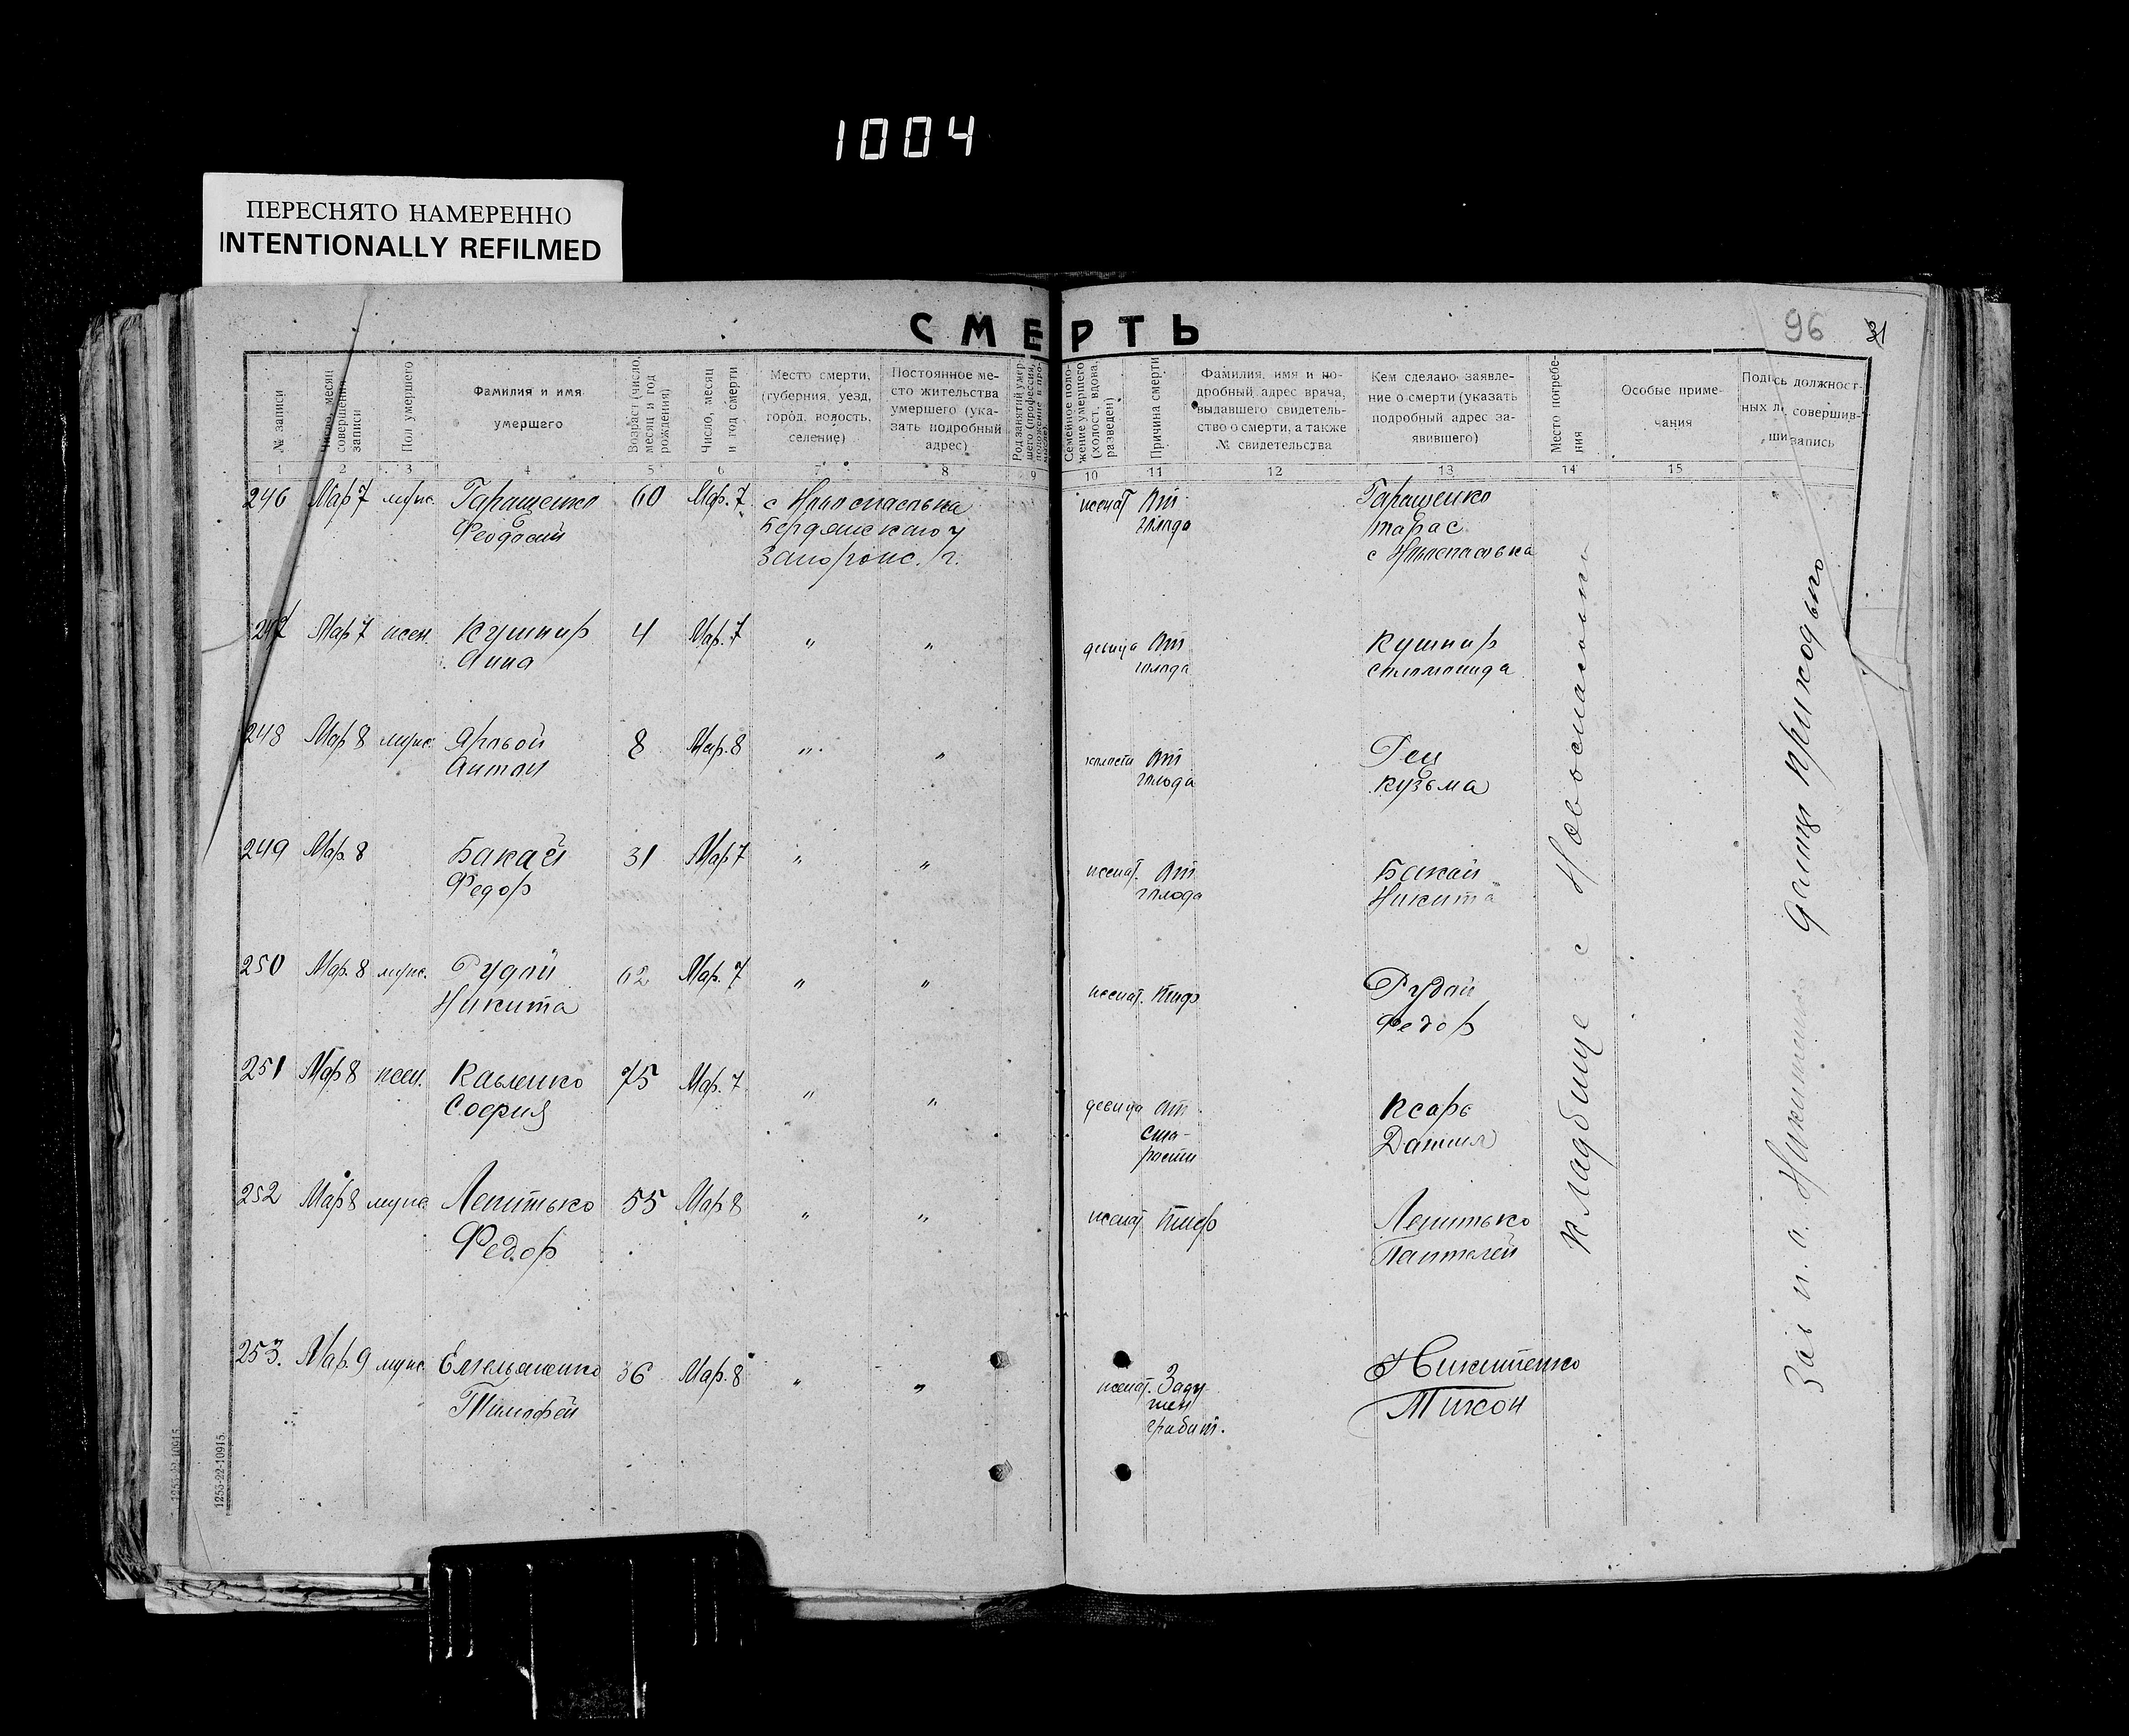 1004
ПЕРЕСНЯТО НАМЕРЕННО
INTENTIONALLY REFILMED
СМЕРТЬ
96
31
№ записи
Число, месяц совершения записи
Пол умершего
Фамилия и имя умершего
Возраст (число, месяц и год рождения)
Число, месяц и год смерти
Место смерти, (губерния, уезд, город, волость, селение)
Постоянное место жительства умершего (указать подробный адрес)
Род занятий умершего (профессия, положение в промысле)
Семейное положение умершего (холост, вдова, разведен)
Причина смерти
Фамилия, имя и подробный адрес врача, выдавшего свидетельство о смерти, а также № свидетельства
Кем сделано заявление о смерти (указать подробный адрес заявившего)
Место погребения
Особые примечания
Подпись должностных лиц совершивши запись
1 2 3 4 5 6 7 8 9 10 11 12 13 14 15
246 Мар 7 муж. Гаращенко Феодосий 60 Мар. 7 с Новоспасовка Бердянского у Запорожс. г. женат От голода Гаращенко Тарас с Новоспасовка
247 Мар 7 жен. Кушнир Анна 4 Мар. 7 " " девица От голода Кушнир
248 Мар 8 муж. Яровой Антон 8 Мар. 8 " " От голода Ген Кузьма
249 Мар. 8 Бакай Федор 31 Мар 7 " " женат. От голода Бакай Никита
250 Мар. 8 муж. Рудой Никита 62 Мар. 7 " " женат. Тиф Рудой Федор
251 Мар 8 жен. Кавленко София 75 Мар. 7 " " девица От старости Даниил
252 Мар 8 муж Лепитько Федор 55 Мар 8 " " женат Тиф Лепитько Пантелей
253. Мар. 9 муж. Емельяненко Тимофей 36 Мар. 8 " " женат. Задушен грабит. Никитенко Тихон
Кладбище с Новоспасовки
Зав. п. о. Никитенко
1253-22-10915.
1253-22-10915.